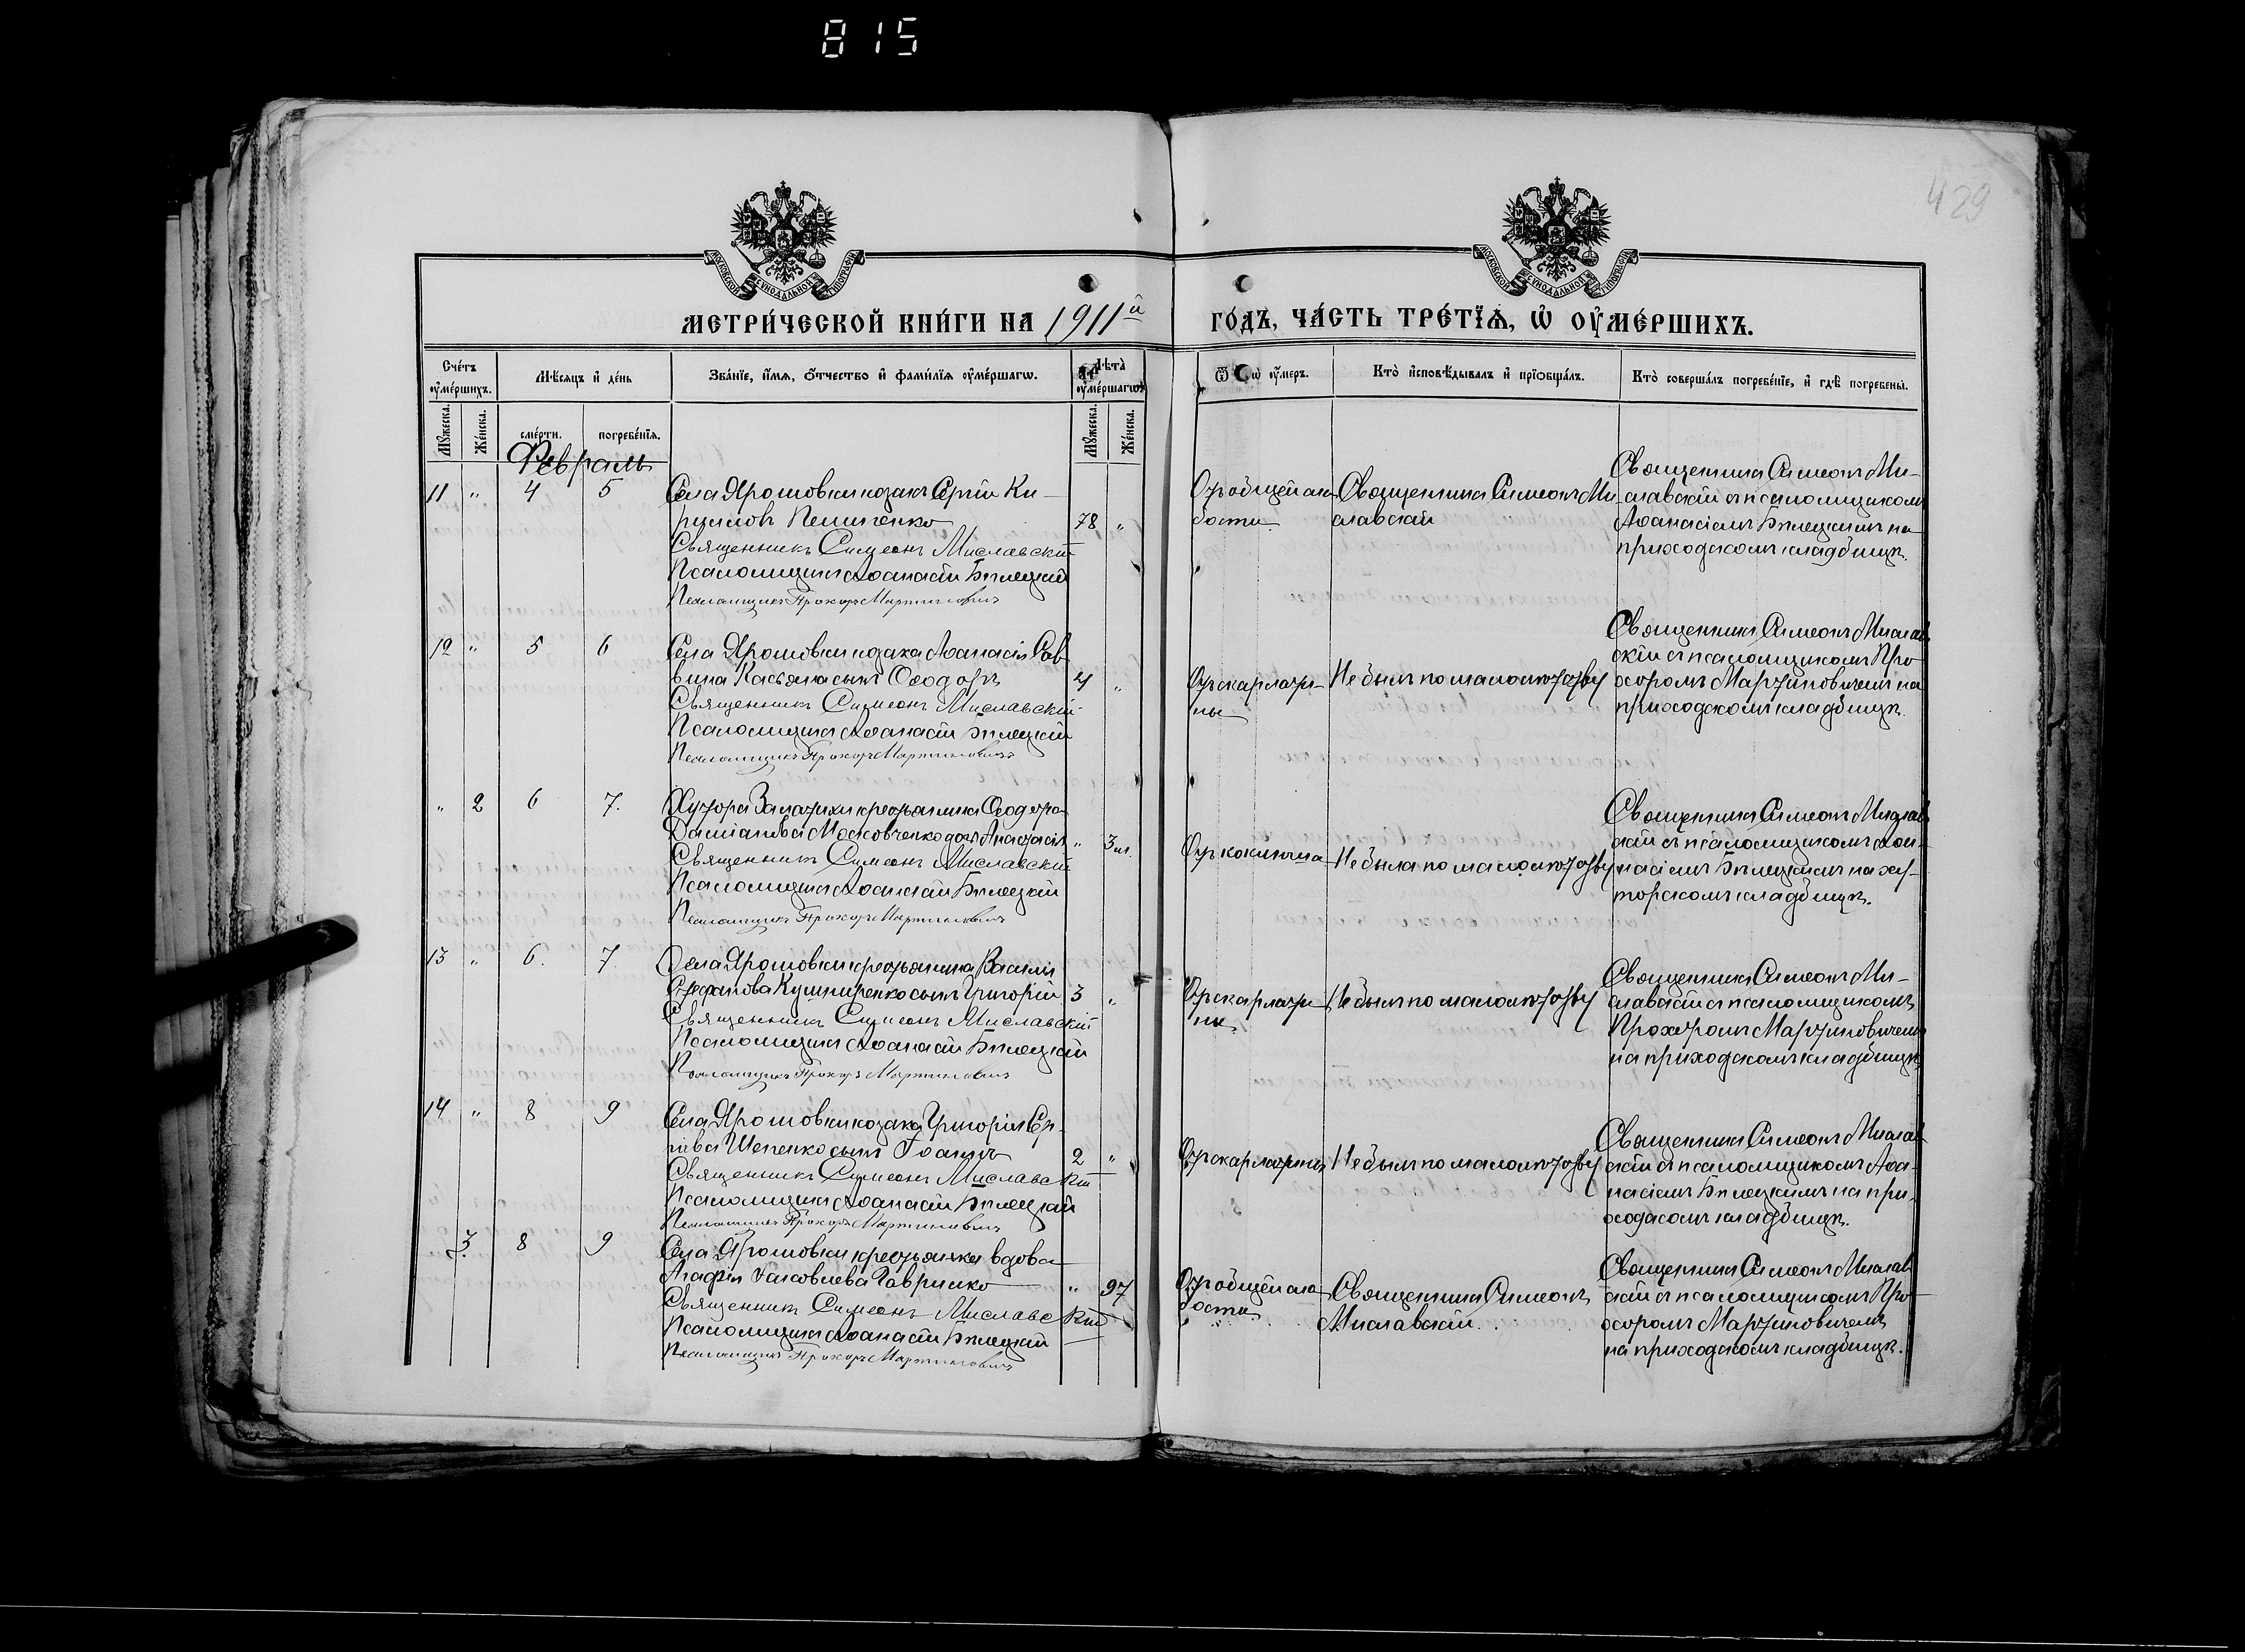 815
429
МОСКОВСКОЙ СѴНОДАЛЬНОЙ ТИПОГРАФІИ
МОСКОВСКОЙ СѴНОДАЛЬНОЙ ТИПОГРАФІИ
МЕТРИ́ЧЕСКОЙ КНИ́ГИ НА 1911й ГО́ДЪ, ЧА́СТЬ ТРЕ́ТЇѦ, Ѡ҆ ОУ҆МЕ́РШИХЪ.
Сче́тъ оу҆ме́ршихъ.
Мѣ́сяцъ и҆ де́нь
Зва́нїе, и҆́мѧ, ѻ҆́тчество и҆ фами́лїѧ оу҆ме́ршагѡ.
Лѣ́та оу҆ме́ршагѡ
оу҆́меръ.
Кто̀ и҆сповѣ́дывалъ и҆ прїѡбща́лъ.
Кто̀ соверша́лъ погребе́нїе, и҆ гдѣ̀ погребены̀.
Мꙋ́жеска.
Же́нска.
сме́рти.
погребе́нїѧ.
Мꙋ́жеска.
Же́нска.
Февраль
11 " 4 5
Села Ярошовки козакъ Сергій Ки-
рилловъ
78 "
Священникъ Симеонъ Миславскій
Псаломщикъ Аѳанасій Бѣлецкій
Псаломщикъ Прохоръ Мартиновичъ
Отъ общей сла-
бости
Священникъ Симеонъ Ми-
славскій
Священникъ Симеонъ Ми-
славскій съ псаломщикомъ
Аѳанасіемъ Бѣлецкимъ на
приходскомъ кладбищѣ.
12 " 5 6
Села Ярошовки козака Аѳанасія Сав-
вина Касьяна сынъ Ѳеодоръ
4 "
Священникъ Симеонъ Миславскій
Псаломщикъ Аѳанасій Бѣлецкій
Псаломщикъ Прохоръ Мартиновичъ
Отъ скарлати-
ны
Не былъ по малолѣтству
Священникъ Симеонъ Мислав-
скій съ псаломщикомъ Про-
хоромъ Мартиновичемъ на
приходскомъ кладбищѣ.
" 2 6 7.
Хутора крестьянина Ѳеодора
Даміанова Московченко дочь Анастасія
" 3 м.
Священникъ Симеонъ Миславскій
Псаломщикъ Аѳанасій Бѣлецкій
Псаломщикъ Прохоръ Мартиновичъ
Отъ коклюша
Не была по малолѣтству
Священникъ Симеонъ Мислав-
скій съ псаломщикомъ Аѳа-
насіемъ Бѣлецкимъ на ху-
торскомъ кладбищѣ.
13 " 6. 7
Села Ярошовки крестьянина Василія
Стефанова Кушниренко сынъ Григорій
3 "
Священникъ Симеонъ Миславскій
Псаломщикъ Аѳанасій Бѣлецкій
Псаломщикъ Прохоръ Мартиновичъ
Отъ скарлати-
ны
Не былъ по малолѣтству
Священникъ Симеонъ Ми-
славскій съ псаломщикомъ
Прохоромъ Мартиновичемъ
на приходскомъ кладбищѣ
14 " 8 9
Села Ярошовки козака Григорія Сер-
гіева сынъ Іоаннъ
2 "
Священникъ Симеонъ Миславскій
Псаломщикъ Аѳанасій Бѣлецкій
Псаломщикъ Прохоръ Мартиновичъ
Отъ скарлатины
Не былъ по малолѣтству
Священникъ Симеонъ Мислав-
скій съ псаломщикомъ Аѳа-
насіемъ Бѣлецкимъ на при-
ходскомъ кладбищѣ.
3. 8 9
Села Ярошовки крестьянка вдова
Агафія Іаковлева Гавриленко
" 97
Священникъ Симеонъ Миславскій
Псаломщикъ Аѳанасій Бѣлецкій
Псаломщикъ Прохоръ Мартиновичъ
Отъ общей сла-
бости
Священникъ Симеонъ
Миславскій.
Священникъ Симеонъ Мислав-
скій съ псаломщикомъ Про-
хоромъ Мартиновичемъ
на приходскомъ кладбищѣ.